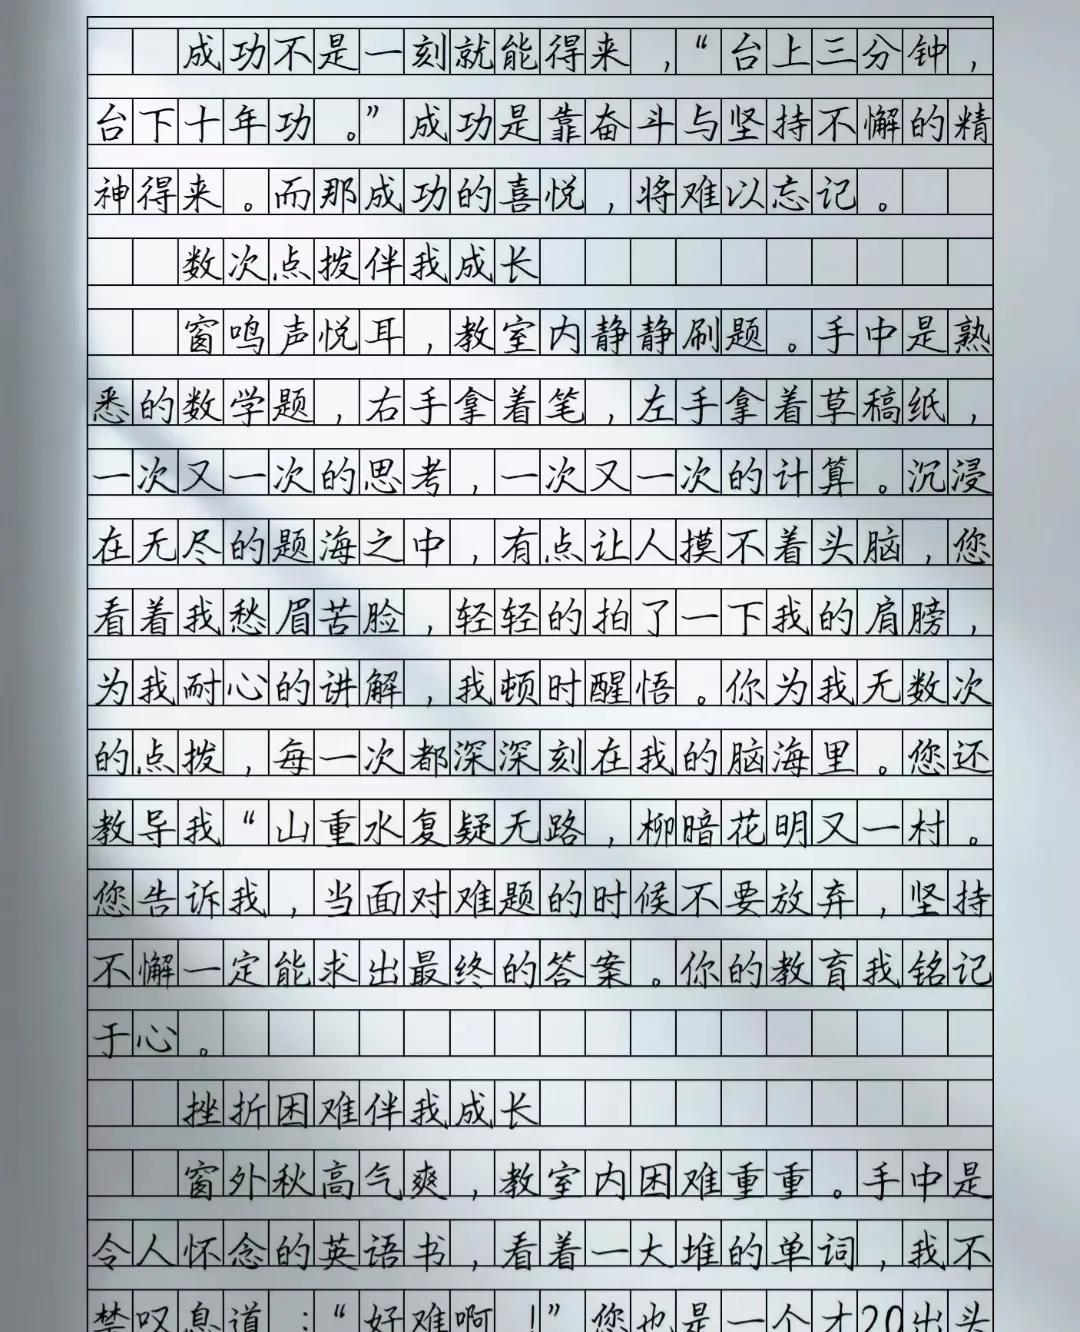 成功不是一刻就能得来，“台上三分钟，
台下十年功。”成功是靠奋斗与坚持不懈的精
神得来。而那成功的喜悦，将难以忘记。
数次点拨伴我成长
窗鸣声悦耳，教室内静静刷题。手中是熟
悉的数学题，右手拿着笔，左手拿着草稿纸，
一次又一次的思考，一次又一次的计算。沉浸
在无尽的题海之中，有点让人摸不着头脑，您
看着我愁眉苦脸，轻轻的拍了一下我的肩膀，
为我耐心的讲解，我顿时醒悟。你为我无数次
的点拨，每一次都深深刻在我的脑海里。您还
教导我“山重水复疑无路，柳暗花明又一村。
您告诉我，当面对难题的时候不要放弃，坚持
不懈一定能求出最终的答案。你的教育我铭记
于心。
挫折困难伴我成长
窗外秋高气爽，教室内困难重重。手中是
令人怀念的英语书，看着一大堆的单词，我不
禁叹息道：“好难啊！”您也是一个才20出头